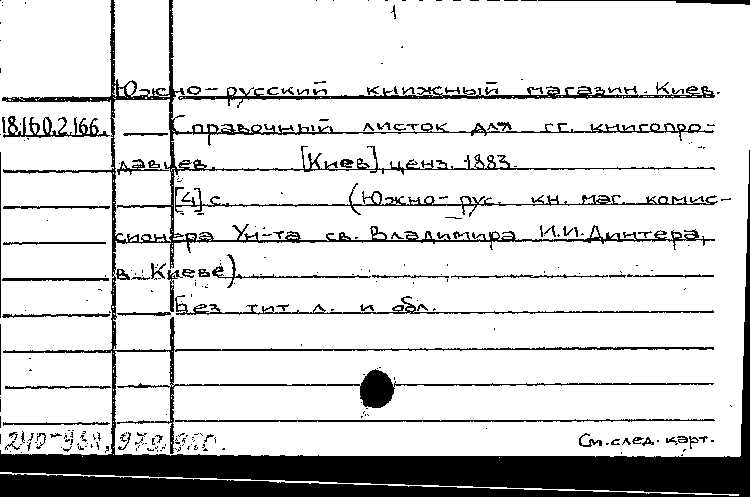 1
Южно-русский книжный магазин. Киев.
18.160.2.166. Справочный листок для гг. книгопро-
давцев. [Киев], ценз. 1883.
[4] с. (Южно-рус. кн. маг. комис-
сионера Ун-та св. Владимира И.И. Динтера,
в Киеве).
Без тит. л. и обл.
См. след. карт.